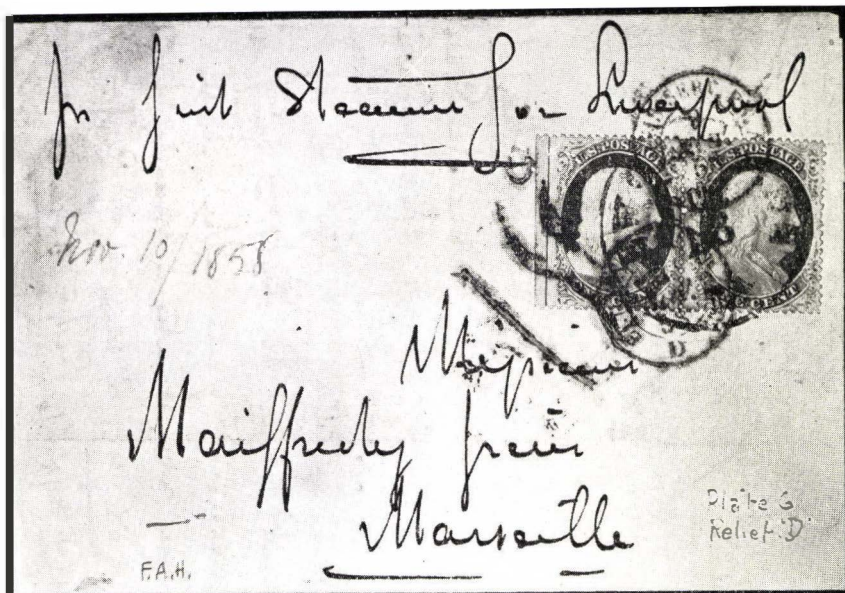 Steamer for Liverpool
U.S. POSTAGE U.S. POSTAGE
Nov. 10/1858
D
Maiffredy frères
Marseille
Plate 6
Relief. D
F.A.H.